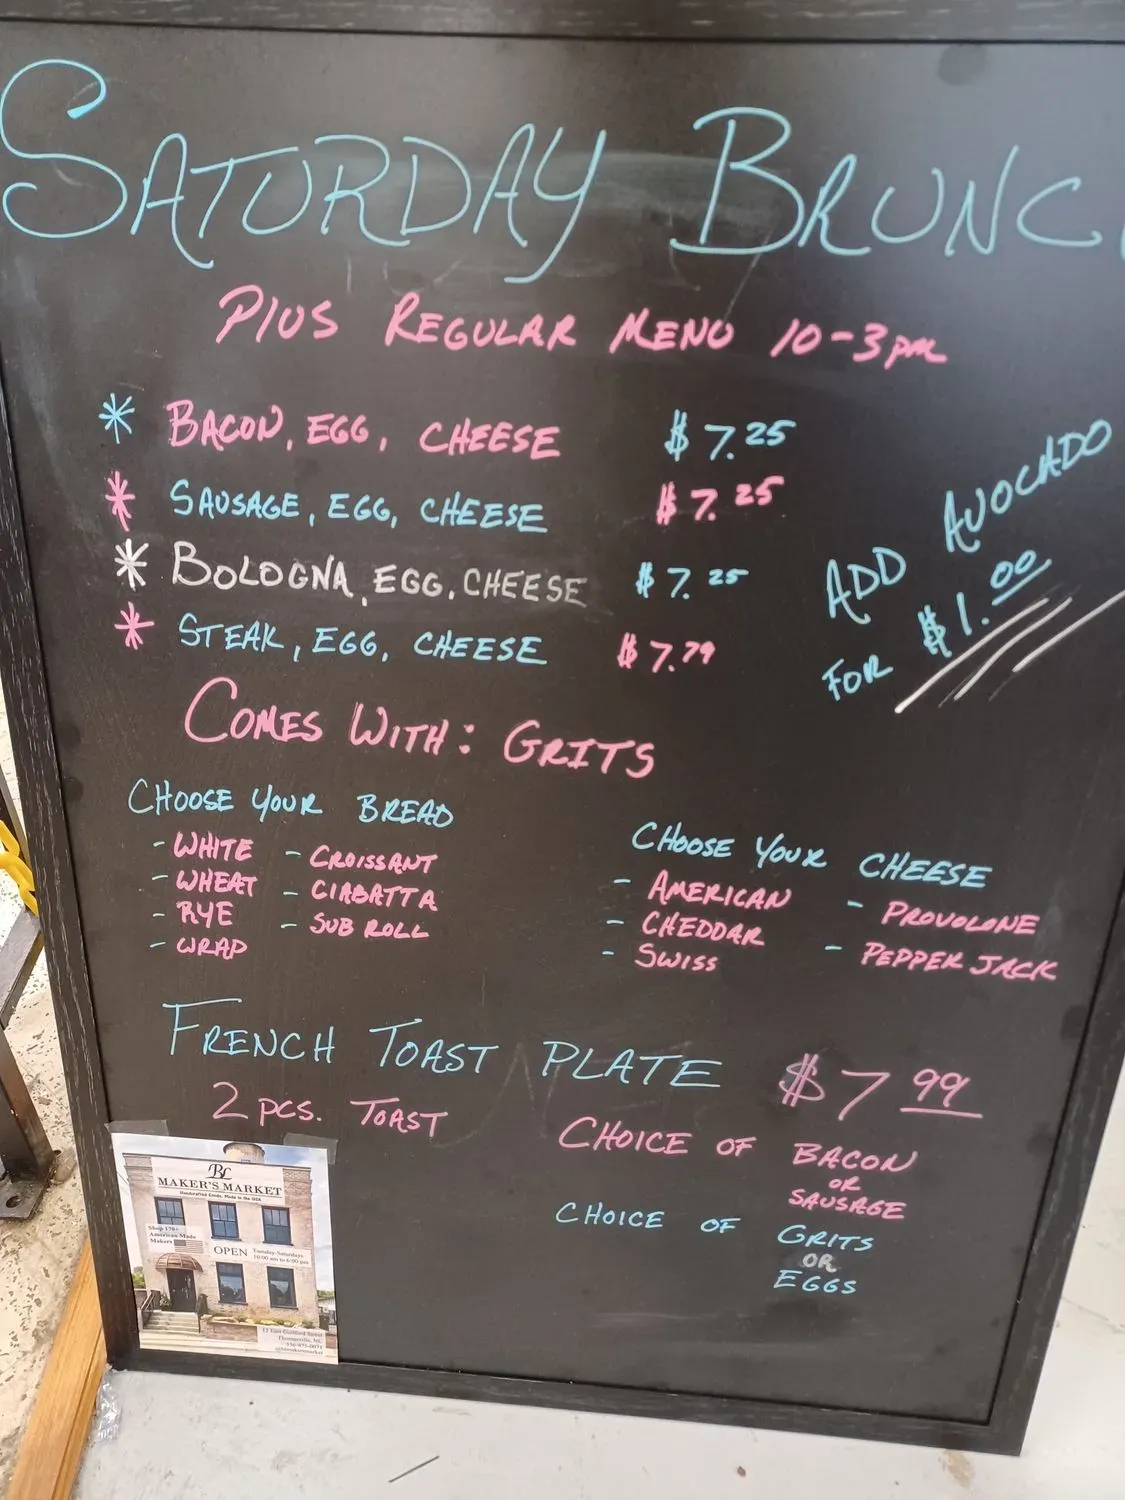 SATURDAY BRUNC
PLUS REGULAR MENU 10-3pm
* BACON, EGG, CHEESE $7.25
* SAUSAGE, EGG, CHEESE $7.25
* BOLOGNA, EGG, CHEESE $7.25
* STEAK, EGG, CHEESE $7.79
ADD AVOCADO
FOR $1.00
COMES WITH: GRITS
CHOOSE YOUR BREAD
- WHITE - CROISSANT
- WHEAT - CIABATTA
- RYE - SUB ROLL
- WRAP
CHOOSE YOUR CHEESE
- AMERICAN - PROVOLONE
- CHEDDAR - PEPPER JACK
- SWISS
FRENCH TOAST PLATE $7.99
2 PCS. TOAST
CHOICE OF BACON
OR
SAUSAGE
CHOICE OF GRITS
OR
EGGS
BL
MAKER'S MARKET
Handcrafted Goods. Made in the USA
Shop 170+
American Made
Makers
OPEN Tuesday-Saturdays
10:00 am to 6:00 pm
12 East Guilford Street
Thomasville, NC